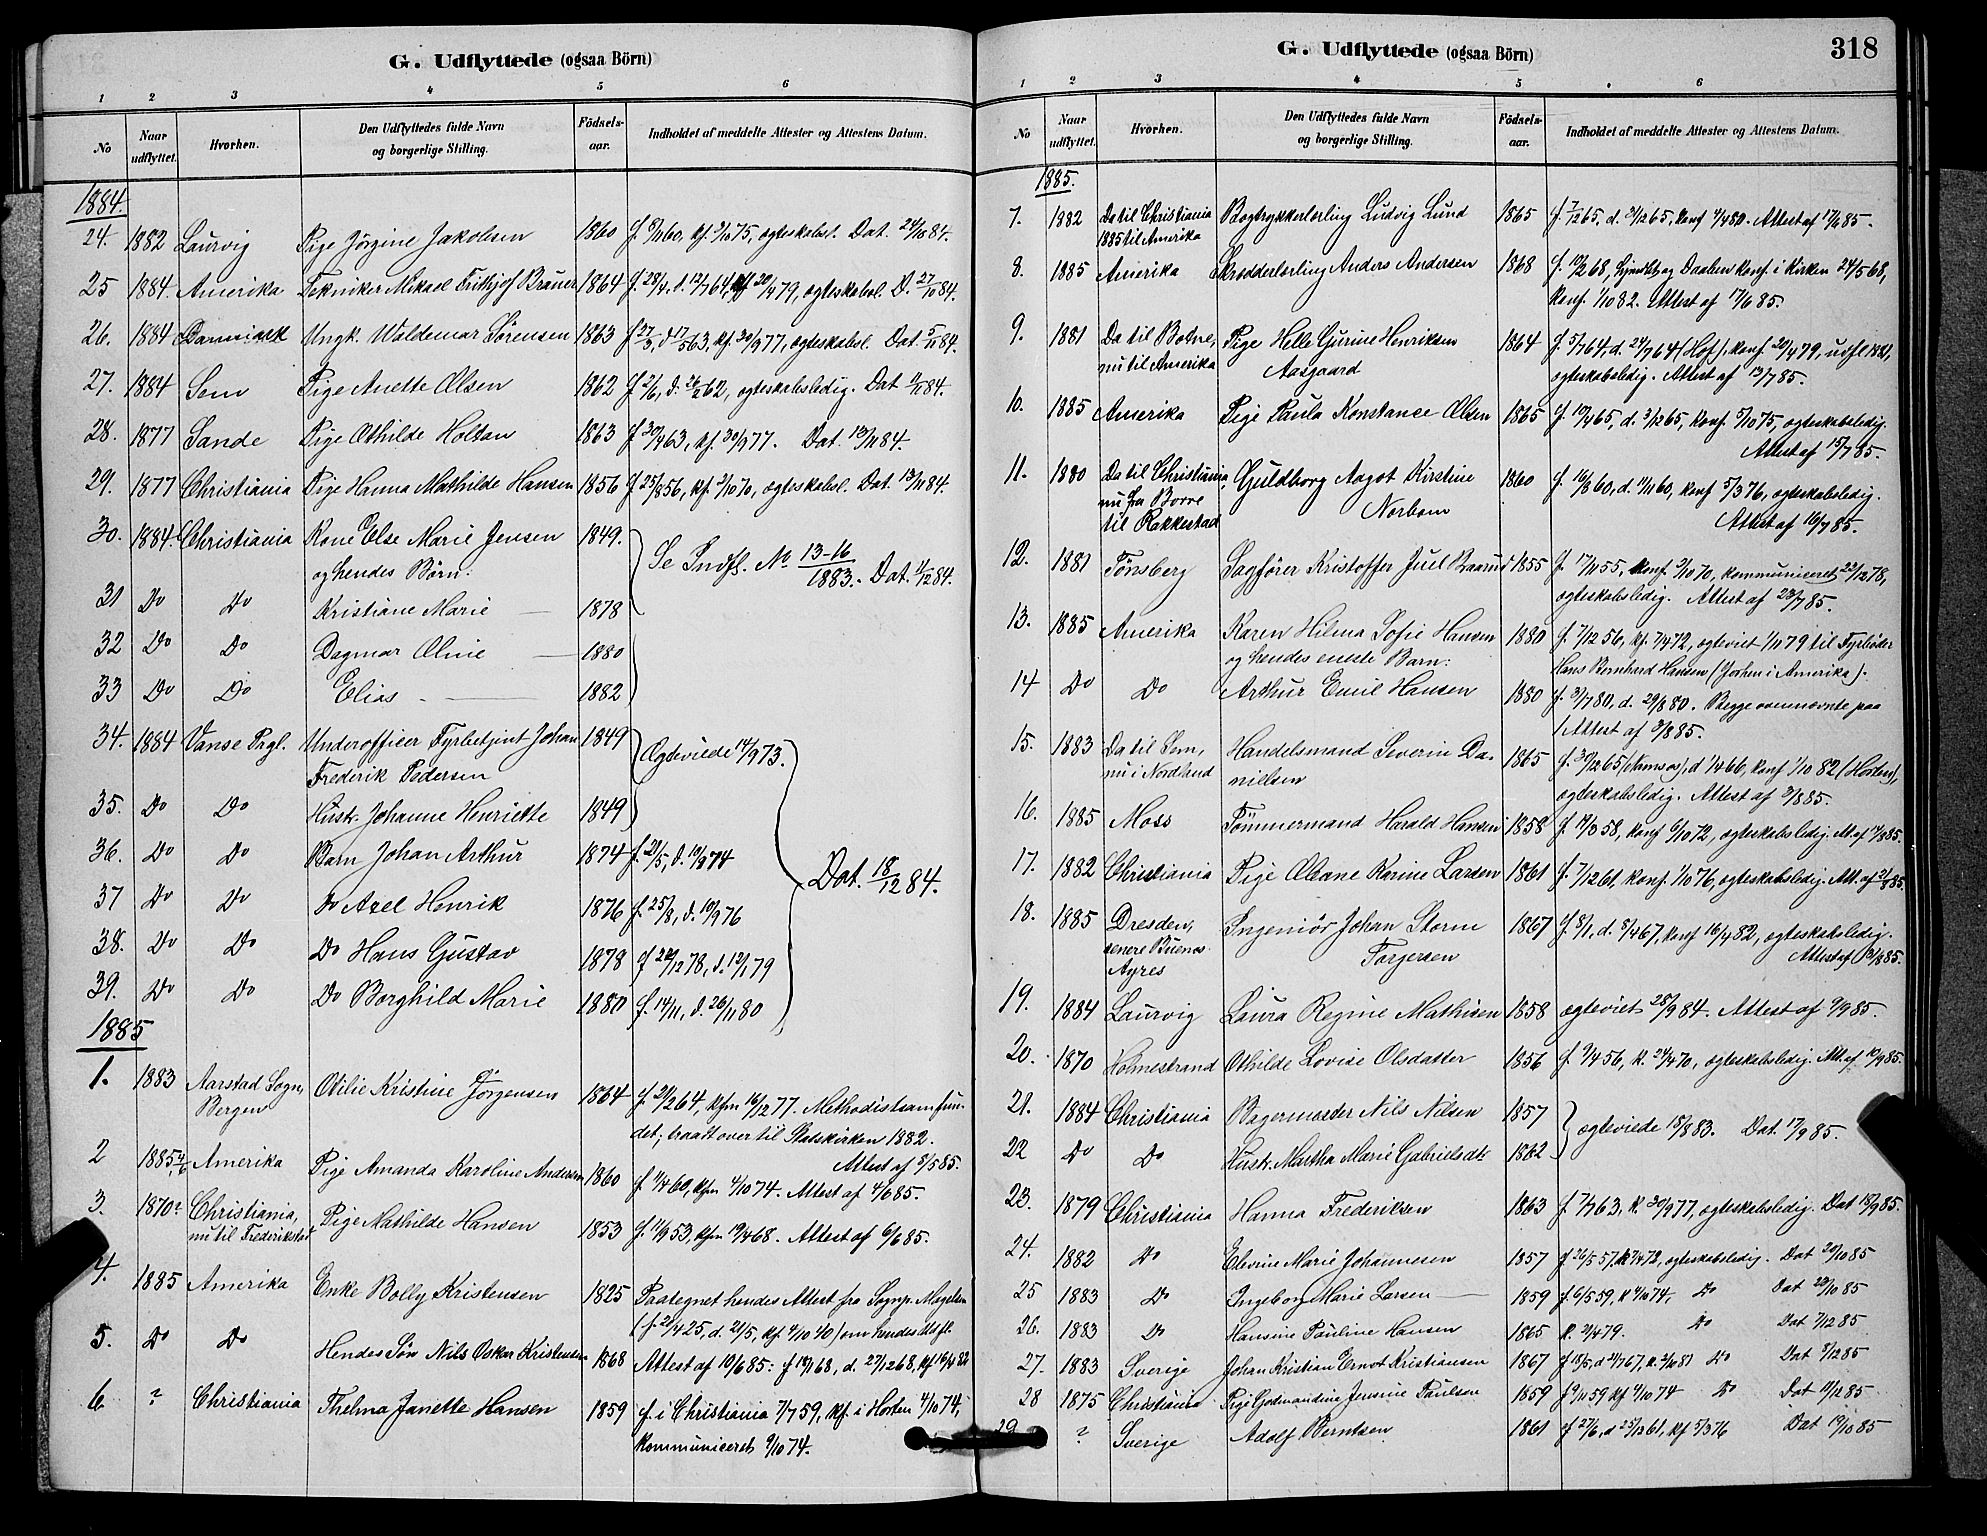 G. Udflyttede (ogsaa Börn)
1 2 3 4 5 6
No Naar udflyttet. Hvorhen. Den Udflyttedes fulde Navn og borgerlige Stilling. Födsels-aar. Indholdet af meddelte Attester og Attestens Datum.
1884.
24. 1882 Laurvig Pige Jörgine Jakobsen 1860 ægteskabsl. Dat. 24/10 84.
25 1884. Amerika Tekniker Mikael Frithjof Brauer 1864 f. 28/4, d. 12/7 64, kf 20/4 79, ægteskabsl. D. 27/10 84.
26. 1884 Danmark Ungk. Waldemar Sørensen 1863 f 27/3, d 17/5 63, kf. 30/9 77, ægteskabsl. Dat. 5/11 84.
27. 1884 Sem Pige Anette Olsen 1862 f 2/6, d. 26/12 62, ægteskabsledig. Dat 11/11 84.
28. 1877 Sande Pige Othilde Holtan 1863 f 30/4 63, kf. 30/9 77. Dat. 13/11 84.
29. 1877 Christiania Pige Hanna Mathilde Hansen 1856 f 25/8 56, kf. 2/10 70, ægteskabsl. Dat. 13/11 84.
30. 1884. Christiania Kone Else Marie Jensen 1849.
og hendes Börn:
Se Indfl. No 13-16/1883. Dat. 11/12 84.
31 Do Do Kristiane Marie 1878
32 Do Do Dagmar Oline 1880
33 Do Do Elias 1882
34. 1884 Vanse Prgl. Underofficer Fyrbetjent Johan 1849 Ægteviede 14/9 73.
Frederik Pedersen
35. Do Do Hustr. Johanne Henriette 1849
36. Do Do Barn Johan Arthur 1874 f. 21/5, d. 19/9 74
Dat. 18/12 84.
37 Do Do Do Axel Henrik 1876 f. 25/8, d. 10/9 76
38. Do Do Do Hans Gustav 1878 f 28/12 78, d. 12/1 79
39. Do Do Do Borghild Marie 1880 f. 14/11, d. 26/11 80
1885
1. 1883 Aarstad Sogn, Otilie Kristine Jörgensen 1864 f. 21/2 64, kfm 16/12 77. Methodistsamfun-
Bergen det; traadt over til Statskirken 1882.
Attest af 8/5 85.
2 1885 4/6 Amerika Pige Amanda Karoline Andersen 1860 f. 1/4 60, kfm 4/10 74. Attest af 4/6 85.
3. 1870? Christiania, Pige Mathilde Hansen 1853 f. 11/9 53, kfm 19/4 68. Attest af 6/6 85.
nu til Frederikstad
4. 1885 Amerika Enke Bolly Kristensen 1825 Paategnet hendes Attest fra Sognp. Magelsen
(f. 21/4 25, d. 21/5, kf. 4/10 40) om hendes Udfl.
5. Do Do Hendes Søn Nils Oskar Kristensen 1868 Attest af 10/6 85: d. 27/12 68, kf 16/4 82
6 ? Christiania Thelma Janette Hansen 1859 f. i Christiania 7/7 59, kf. i Horten 4/10 74,
kommuniceret 9/10 74.
G. Udflyttede (ogsaa Börn) 318
1 2 3 4 5 6
No Naar udflyttet. Hvorhen. Den Udflyttedes fulde Navn og borgerlige Stilling. Födsels-aar. Indholdet af meddelte Attester og Attestens Datum.
1885.
7. 1882 Da til Christiania Bogtrykkerlærling Ludvig Lund 1865 f. 7/12 65, d. 31/12 65, konf 4/4 80. Attest af 17/6 85.
1885 til Amerika
8. 1885 Amerika Skrædderlærling Anders Andersen 1868 f. 10/2 68, Daaben konf i Kirken 24/5 68,
konf. 1/10 82. Attest af 17/6 85.
9. 1881 Da til Botne, Pige Helle Gurine Henriksen 1864 f. 5/7 64, d. 24/7 64 (Hof), konf 20/4 79, udfl 1881,
nu til Amerika Aasgaard ægteskabsledig. Attest af 13/7 85.
10. 1885 Amerika Pige Paula Konstance Olsen 1865 f. 19/4 65, d. 3/12 65, konf 5/10 75, ægteskabsledig.
Attest af 15/7 85.
11. 1880 Da til Christiania, Guldborg Aagot Kirstine 1860 f. 16/8 60, d. 11/11 60, konf 5/3 76, ægteskabsledig.
nu fra Borre Norbom Attest af 16/7 85.
til Rakkestad
12. 1881 Tönsberg Sagförer Kristoffer Juel Braarud 1855 f. 17/11 55, konf. 2/10 70, kommuniceret 22/12 78,
ægteskabsledig. Attest af 23/7 85.
13. 1885 Amerika Karen Hilma Sofie Hansen 1880 f. 7/12 56, kf. 7/4 72, ægteviet 1/11 79 til Fyrböder
og hendes eneste Barn: Hans Bernhard Hansen (Forhen i Amerika).
14 Do Do Arthur Emil Hansen 1880 f. 31/7 80, d. 29/8 80. Begge ovennævnte paa
1 Attest af 3/8 85.
15. 1883 Da til Sem, Handelsmand Severin Da- 1865 f. 30/12 65 (Namsos), d 1/4 66, konf 1/10 82 (Horten),
nu i Nordland nielsen ægteskabsledig. Attest af 3/8 85.
16. 1885 Moss Tömmermand Harald Hansen 1858 f. 19/3 58, konf 6/10 72, ægteskabsledig.
17. 1882 Christiania Pige Oleane Karine Larsen 1861 f. 7/12 61, konf. 1/10 76, ægteskabsledig. Att. af 21/8 85.
18. 1885 Dresden, Ingeniör Johan Storm 1867 f. 8/1, d. 8/4 67, konf 16/4 82, ægteskabsledig.
senere Buenos Torgersen Attest af 31/8 85.
Ayres
19. 1884 Laurvig Laura Regine Mathisen 1858 ægteviet 28/9 84. Attest af 9/9 85.
20. 1870 Holmestrand Othilde Lovise Olsdatter 1856 f. 9/4 56, k. 24/4 70, ægteskabsledig. Att. af 10/9 85.
21. 1884 Christiania Bagermester Nils Nilsen 1857
ægteviede 18/8 83. Dat. 17/9 85.
22 Do Do Hustr. Martha Marie Gabrielsdtr 1862
23. 1879 Christiania Hanna Frederiksen 1863 f. 7/7 63, k. 30/9 77, ægteskabsledig. Dat 18/9 85.
24. 1882 Do Elevine Marie Johannesen 1857 f 26/5 57, k 7/4 72, ægteskabsledig. Dat 20/10 85
25 1883 Do Ingeborg Marie Larsen 1859 f. 6/5 59, k 4/10 74, Do Dat 28/10 85
26. 1883 Do Hansine Pauline Hansen 1865 Do Dat 7/12 85
27. 1883 Sverige Johan Kristian Ernst Kristiansen 1867 k. 2/10 81 Do Dat 9/12 85
28 1875 Christiania Pige Godmandine Jensine Paulsen 1859 f 9/11 59 kf 4/10 74 Do Dat 11/12 85
29 ? Sverige Adolf Berntsen 1861 f 27/6, d 25/12 61, kf 5/3 76 Dat 19/10 85